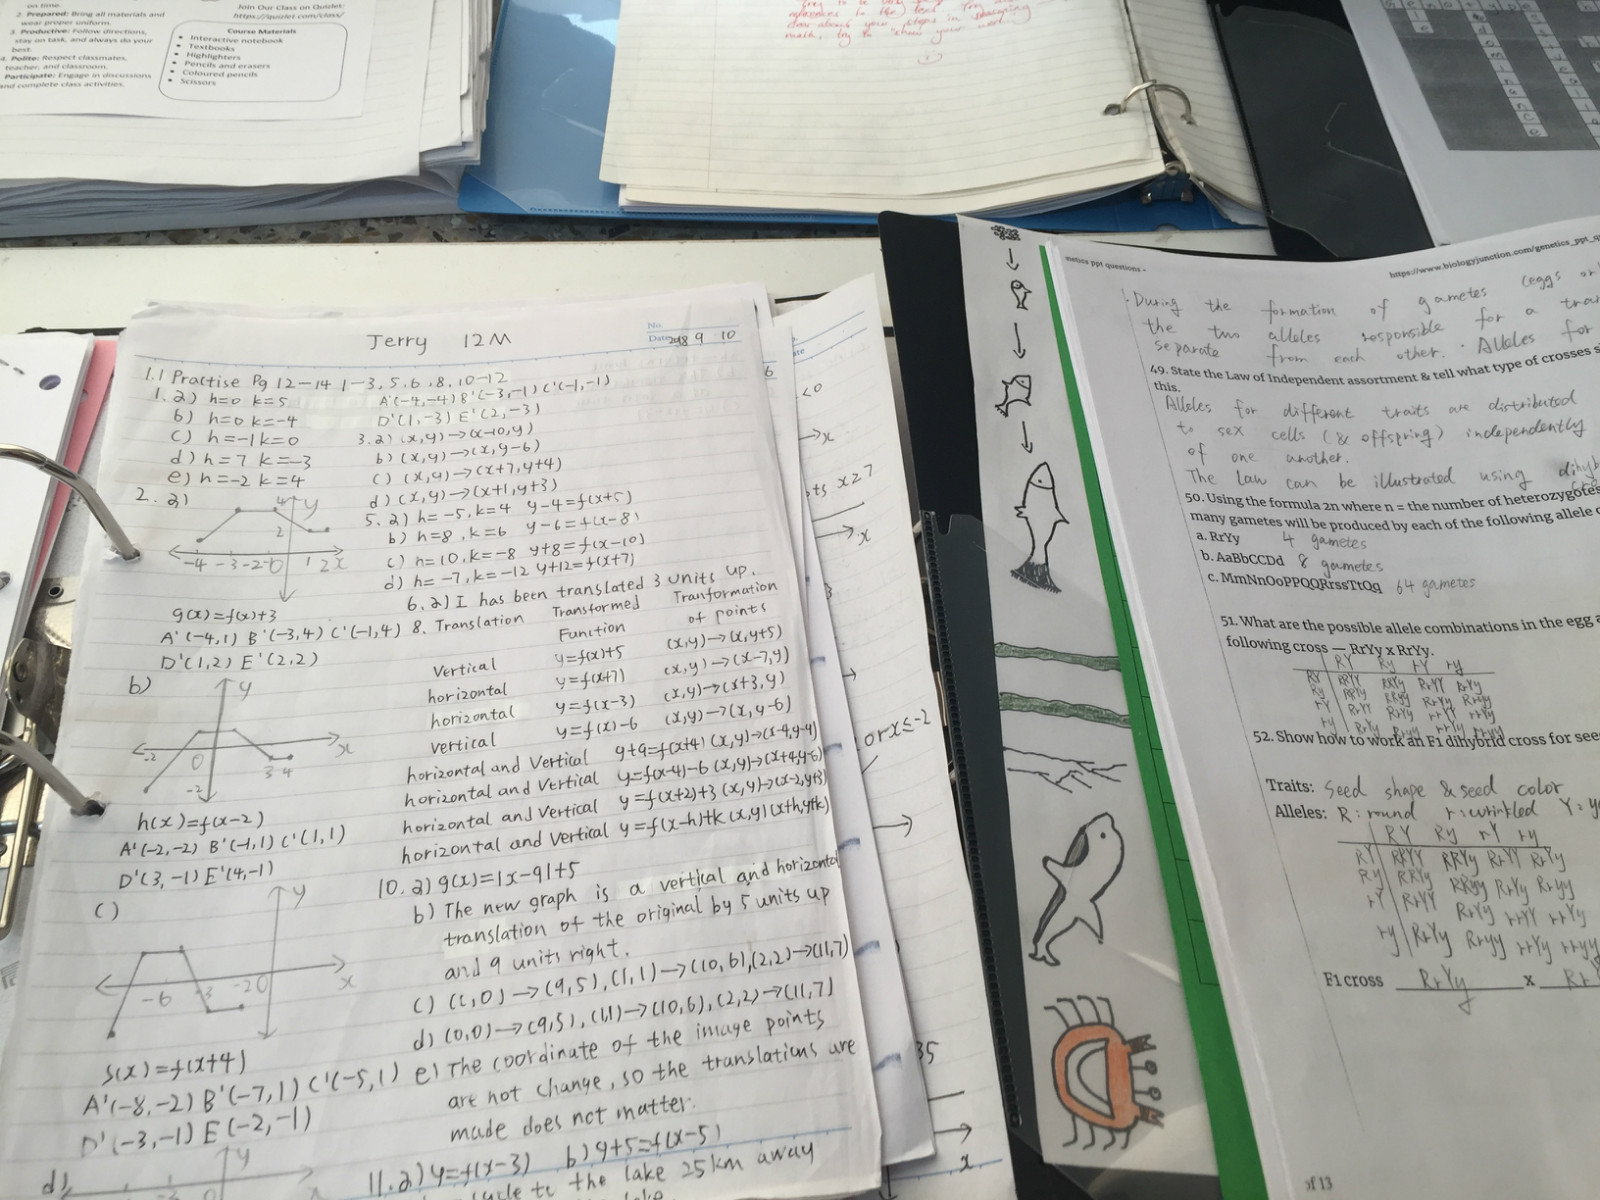 on time.
2. Prepared: Bring all materials and
wear proper uniform.
3. Productive: Follow directions,
stay on task, and always do your
best.
4. Polite: Respect classmates,
teacher, and classroom.
Participate: Engage in discussions
and complete class activities.
Join Our Class on Quizlet:
https://quizlet.com/class/
Course Materials
• Interactive notebook
• Textbooks
• Highlighters
• Pencils and erasers
• Coloured pencils
• Scissors
references to the text
clear about your steps in reasoning
math, try to "show your work".
Jerry 12M
No.
Date 2018 9 10
1.1 Practise Pg 12-14 1-3, 5, 6, 8, 10-12
1. a) h=0 k=5
b) h=0 k=-4
c) h=-1 k=0
d) h=7 k=-3
e) h=-2 k=4
2. a)
y
4
2
-4 -3 -2 0 1 2 x
g(x)=f(x)+3
A'(-4,1) B'(-3,4) C'(-1,4)
D'(1,2) E'(2,2)
b)
y
-2 0 3 4 x
-2
h(x)=f(x-2)
A'(-2,-2) B'(-1,1) C'(1,1)
D'(3,-1) E'(4,-1)
c)
y
-6 -3 -2 0 x
s(x)=f(x+4)
A'(-8,-2) B'(-7,1) C'(-5,1)
D'(-3,-1) E(-2,-1)
d)
y
0 x
A'(-4,-4) B'(-3,-1) C'(-1,-1)
D'(1,-3) E'(2,-3)
3. a) (x,y)→(x-10,y)
b) (x,y)→(x,y-6)
c) (x,y)→(x+7,y+4)
d) (x,y)→(x+1,y+3)
5. a) h=-5, k=4 y-4=f(x+5)
b) h=8, k=6 y-6=f(x-8)
c) h=10, k=-8 y+8=f(x-10)
d) h=-7, k=-12 y+12=f(x+7)
6. a) I has been translated 3 units up.
8. Translation Transformed Tranformation
Function of points
Vertical y=f(x)+5 (x,y)→(x,y+5)
horizontal y=f(x+7) (x,y)→(x-7,y)
horizontal y=f(x-3) (x,y)→(x+3,y)
vertical y=f(x)-6 (x,y)→(x,y-6)
horizontal and Vertical y+9=f(x+4) (x,y)→(x-4,y-9)
horizontal and Vertical y=f(x-4)-6 (x,y)→(x+4,y-6)
horizontal and Vertical y=f(x+2)+3 (x,y)→(x-2,y+3)
horizontal and Vertical y=f(x-h)+k (x,y)(x+h,y+k)
10. a) g(x)=|x-9|+5
b) The new graph is a vertical and horizontal
translation of the original by 5 units up
and 9 units right.
c) (0)→(9,5), (1,1)→(10,6), (2,2)→(11,7)
d) (0,0)→(9,5), (1,1)→(10,6), (2,2)→(11,7)
e) The coordinate of the image points
are not change, so the translations are
made does not matter.
11. a) y=f(x-3) b) y+5=f(x-5)
to the lake 25km away
6
<0
→x
x≥7
x
or x≤-2
35
x
https://www.biologyjunction.com/genetics_ppt_q
netics ppt questions -
During the formation of gametes (eggs or
the two alleles responsible for a trai
separate from each other. Alleles for
49. State the Law of Independent assortment & tell what type of crosses s
this.
Alleles for different traits are distributed
to sex cells (& offspring) independently
of one another.
The law can be illustrated using dihyb
50. Using the formula 2n where n = the number of heterozygotes
many gametes will be produced by each of the following allele c
a. RrYy 4 gametes
b. AaBbCCDd 8 gametes
c. MmNnOoPPQQRrssTtQq 64 gametes
51. What are the possible allele combinations in the egg a
following cross — RrYy x RrYy.
RY Ry rY ry
RY RRYY RRYy RrYY RrYy
Ry RRYy RRyy RrYy Rryy
rY RrYY RrYy rrYY rrYy
ry RrYy Rryy rrYy rryy
52. Show how to work an F1 dihybrid cross for see
Traits: Seed shape & seed color
Alleles: R: round r: wrinkled Y: y
RY Ry rY ry
RY RRYY RRYy RrYY RrYy
Ry RRYy RRyy RrYy Rryy
rY RrYY RrYy rrYY rrYy
ry RrYy Rryy rrYy rryy
F1 cross RrYy x Rr
of 13